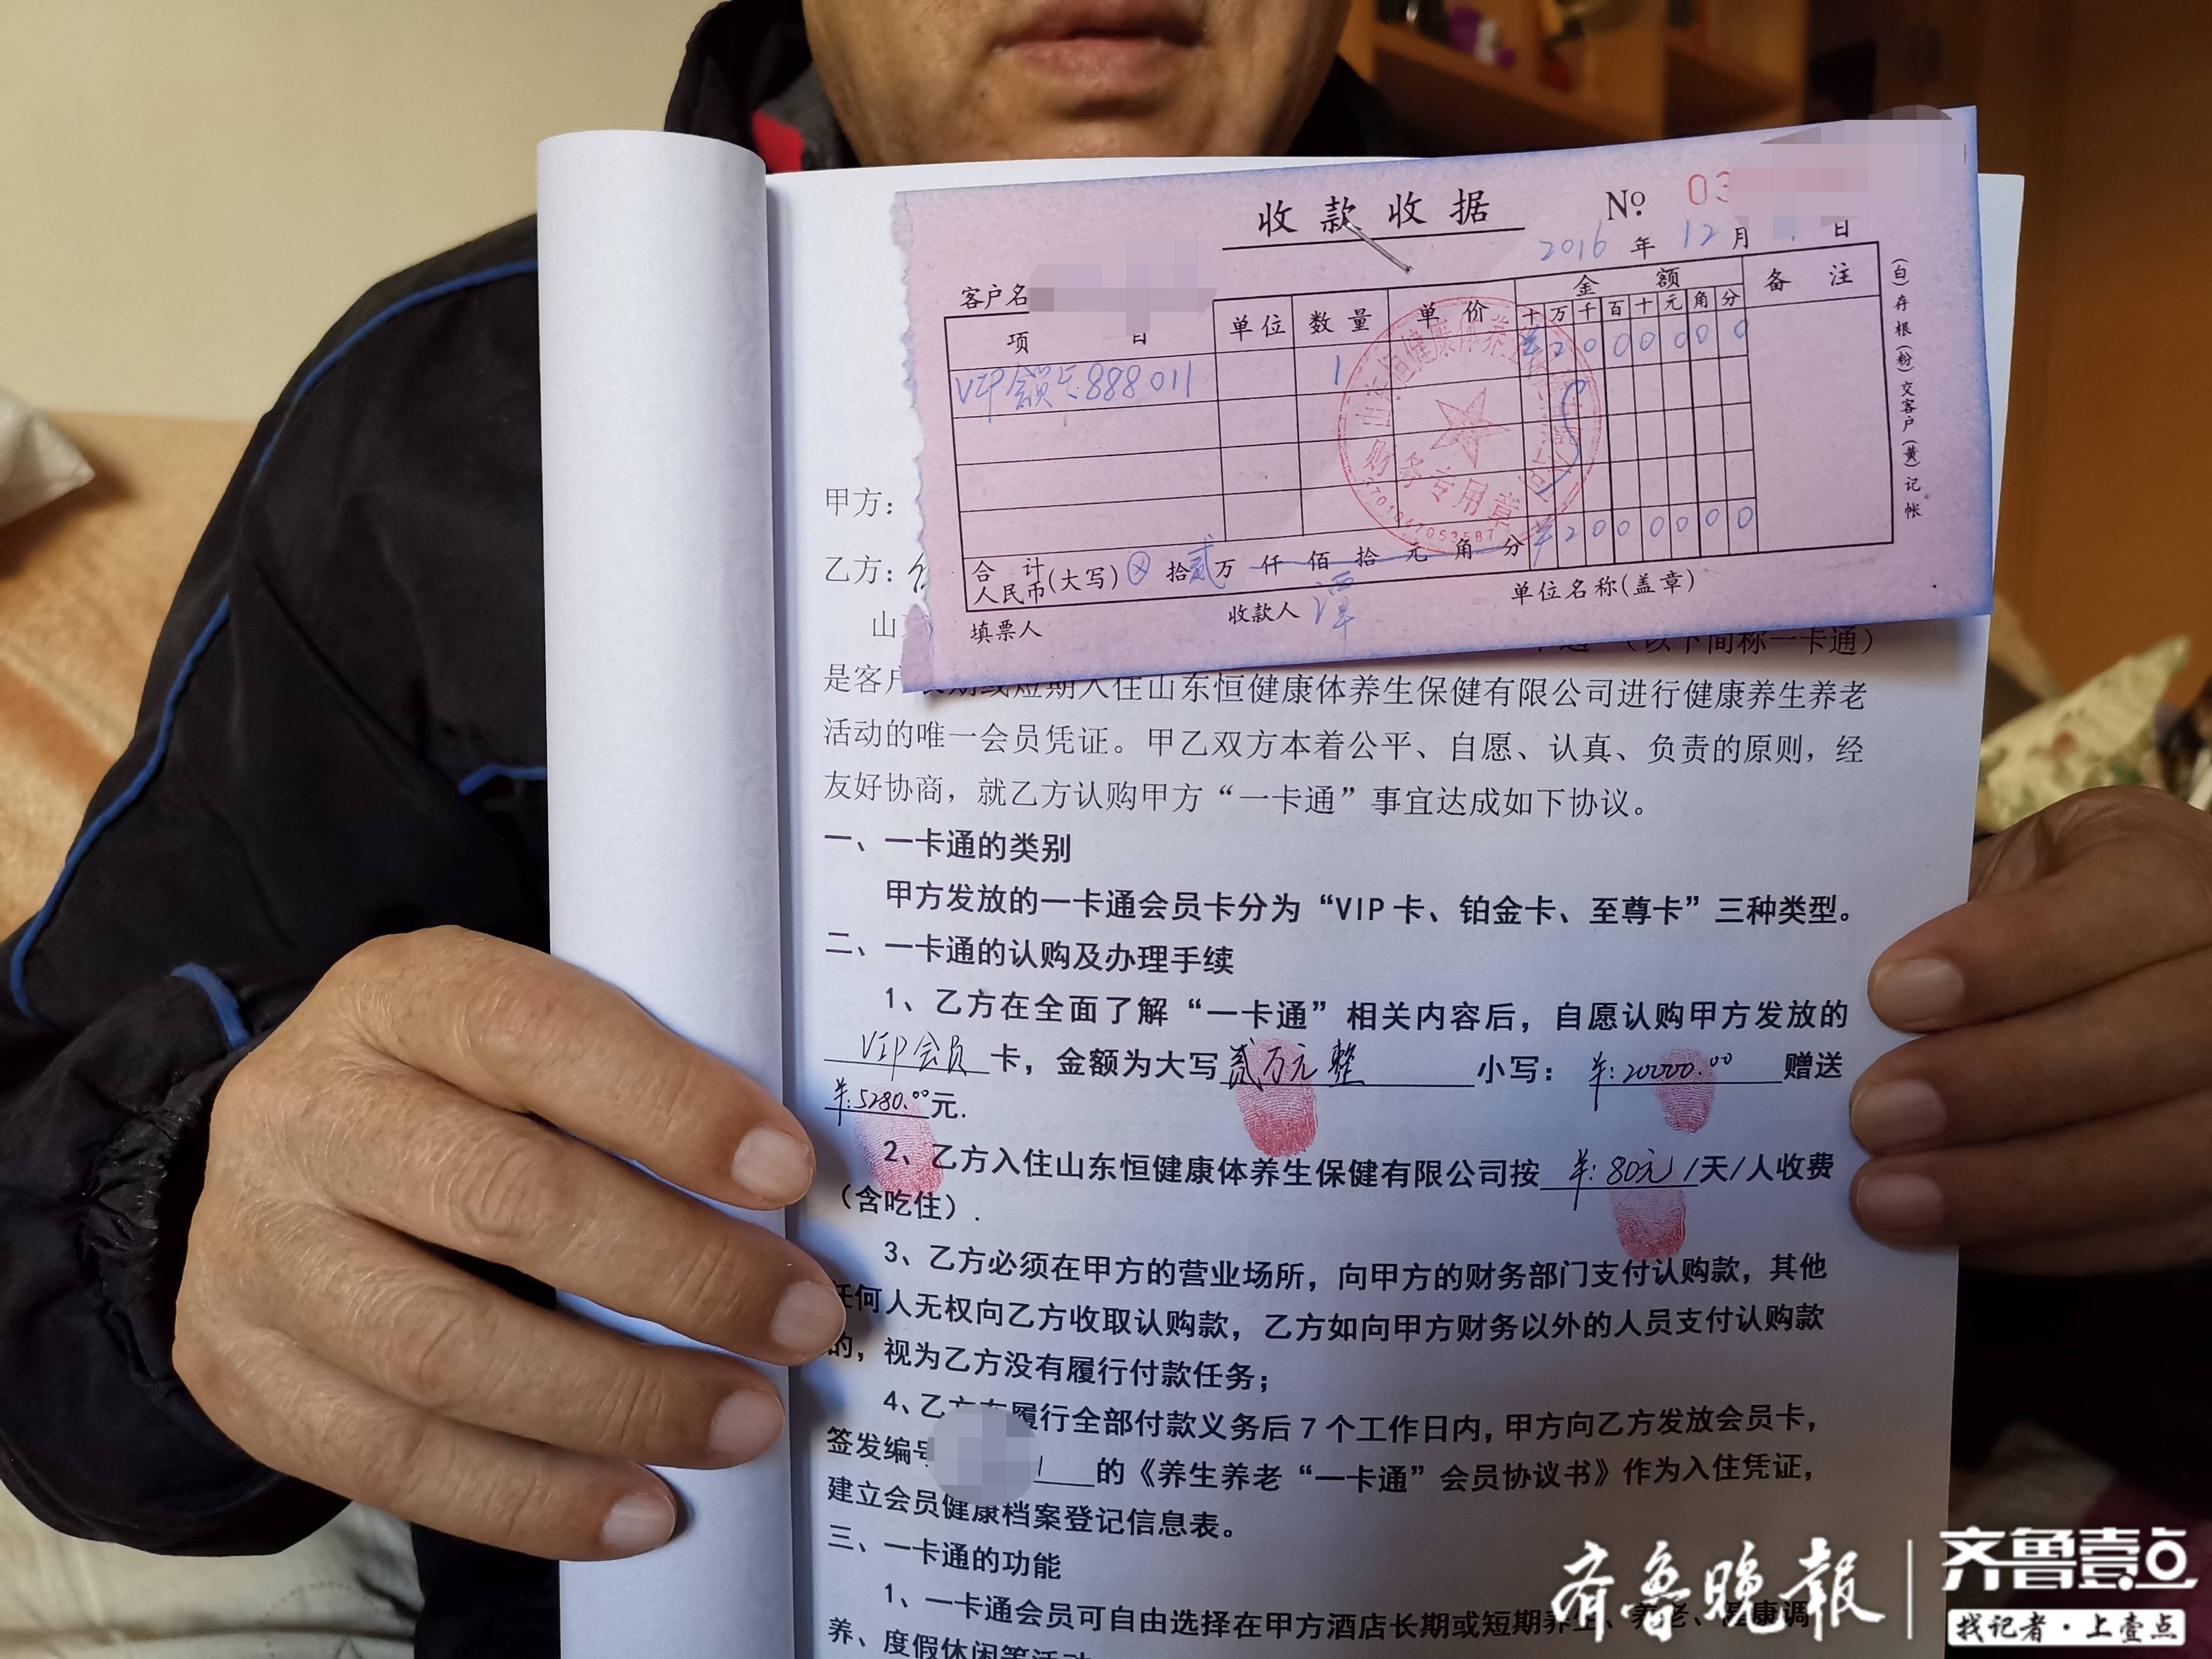 收款收据
No 03
2016年12月 日
客户名
项 目 单位 数量 单价 金额 备注
十万千百十元角分
VIP会员卡888011 1 ¥20000 00
山东恒健康体养生保健有限公司
财务专用章
合计人民币(大写) ⊗拾贰万仟佰拾元角分 ¥20000 00
填票人 收款人 谭 单位名称(盖章)
(白)存根(粉)交客户(黄)记帐
甲方:
乙方:
山
(以下简称一卡通)
是客户长期或短期入住山东恒健康体养生保健有限公司进行健康养生养老
活动的唯一会员凭证。甲乙双方本着公平、自愿、认真、负责的原则,经
友好协商,就乙方认购甲方“一卡通”事宜达成如下协议。
一、一卡通的类别
甲方发放的一卡通会员卡分为“VIP卡、铂金卡、至尊卡”三种类型。
二、一卡通的认购及办理手续
1、乙方在全面了解“一卡通”相关内容后,自愿认购甲方发放的
VIP会员卡,金额为大写贰万元整 小写:¥:20000.00 赠送
¥:5280.00元.
2、乙方入住山东恒健康体养生保健有限公司按 ¥:80元/天/人收费
(含吃住).
3、乙方必须在甲方的营业场所,向甲方的财务部门支付认购款,其他
任何人无权向乙方收取认购款,乙方如向甲方财务以外的人员支付认购款
的,视为乙方没有履行付款任务;
4、乙方在履行全部付款义务后7个工作日内,甲方向乙方发放会员卡,
签发编号 1 的《养生养老“一卡通”会员协议书》作为入住凭证,
建立会员健康档案登记信息表。
三、一卡通的功能
1、一卡通会员可自由选择在甲方酒店长期或短期养生、养老、健康调
养、度假休闲等活动
齐鲁晚报 | 齐鲁壹点
找记者·上壹点